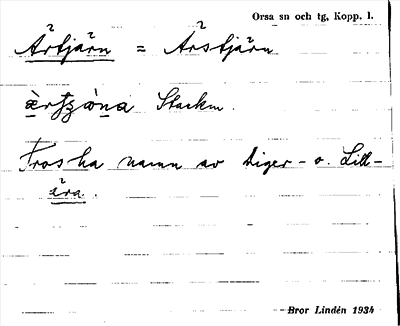 Orsa sn och tg, Kopp. l.
Ärtjärn = Årstjärn
Starkm.
Tros ha namn av Diger- o. Lill-
åra.
Bror Lindén 1934